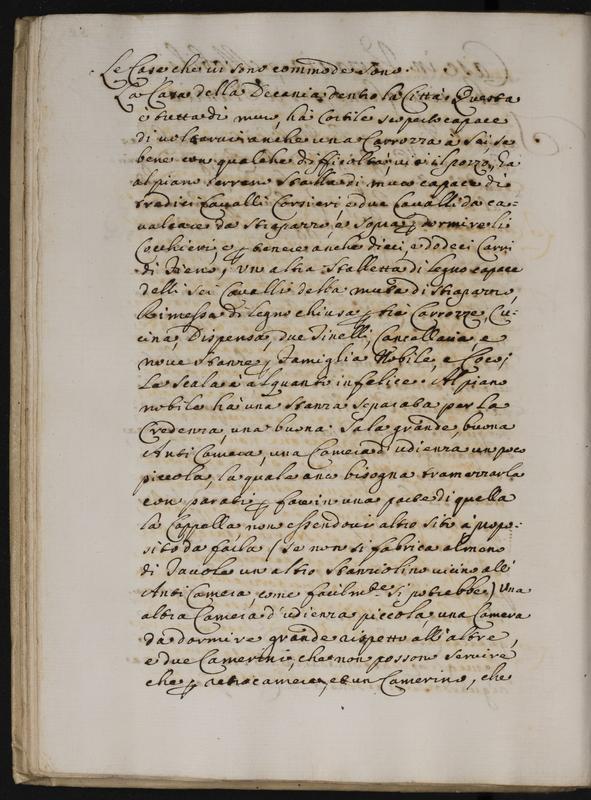 Le Case che vi sono commode sono.
La Casa della Decania dentro la Città. Questa
è tutta di muro, hà Cortile scoperto capace
di voltarvi anche una Carrozza à Sei se
bene con qualche difficoltà, vi è il pozzo, hà
al piano terreno stalla di muro capace di
tredici Cavalli Corsieri, e due Cavalli da ca-
valcare da strapazzo, e sopra dormire li
Cocchieri, e tenere anche dieci, e dodeci Carri
di fieno, Un altra Stalletta di legno capace
delli Sei Cavalli della muta di strapazzo,
Rimessa di legno chiusa tre Carrozze, Cu-
cina, Dispensa, due Tinelli, Cancellaria e
nove stanze famiglia Nobile, e Coco;
La scala è alquanto infelice. Al piano
nobile hà una stanza separata per la
Credenza, una buona Sala grande, buona
Anti Camera, una Camera d'udienza un poco
piccola, la quale anco bisogna tramezzarla
con parati fare in una parte di quella
la Cappella non essendovi altro sito à propo-
sito da farla (se non si fabrica almeno
di Tavole un altro stanziolino vicino all'
Anti Camera, come facilmte si potrebbe) Una
altra Camera d'udienza piccola, una Camera
da dormire grande rispetto all'altre,
e due Camerini, che non possono servire
che retrocamera, et un Camerino, che